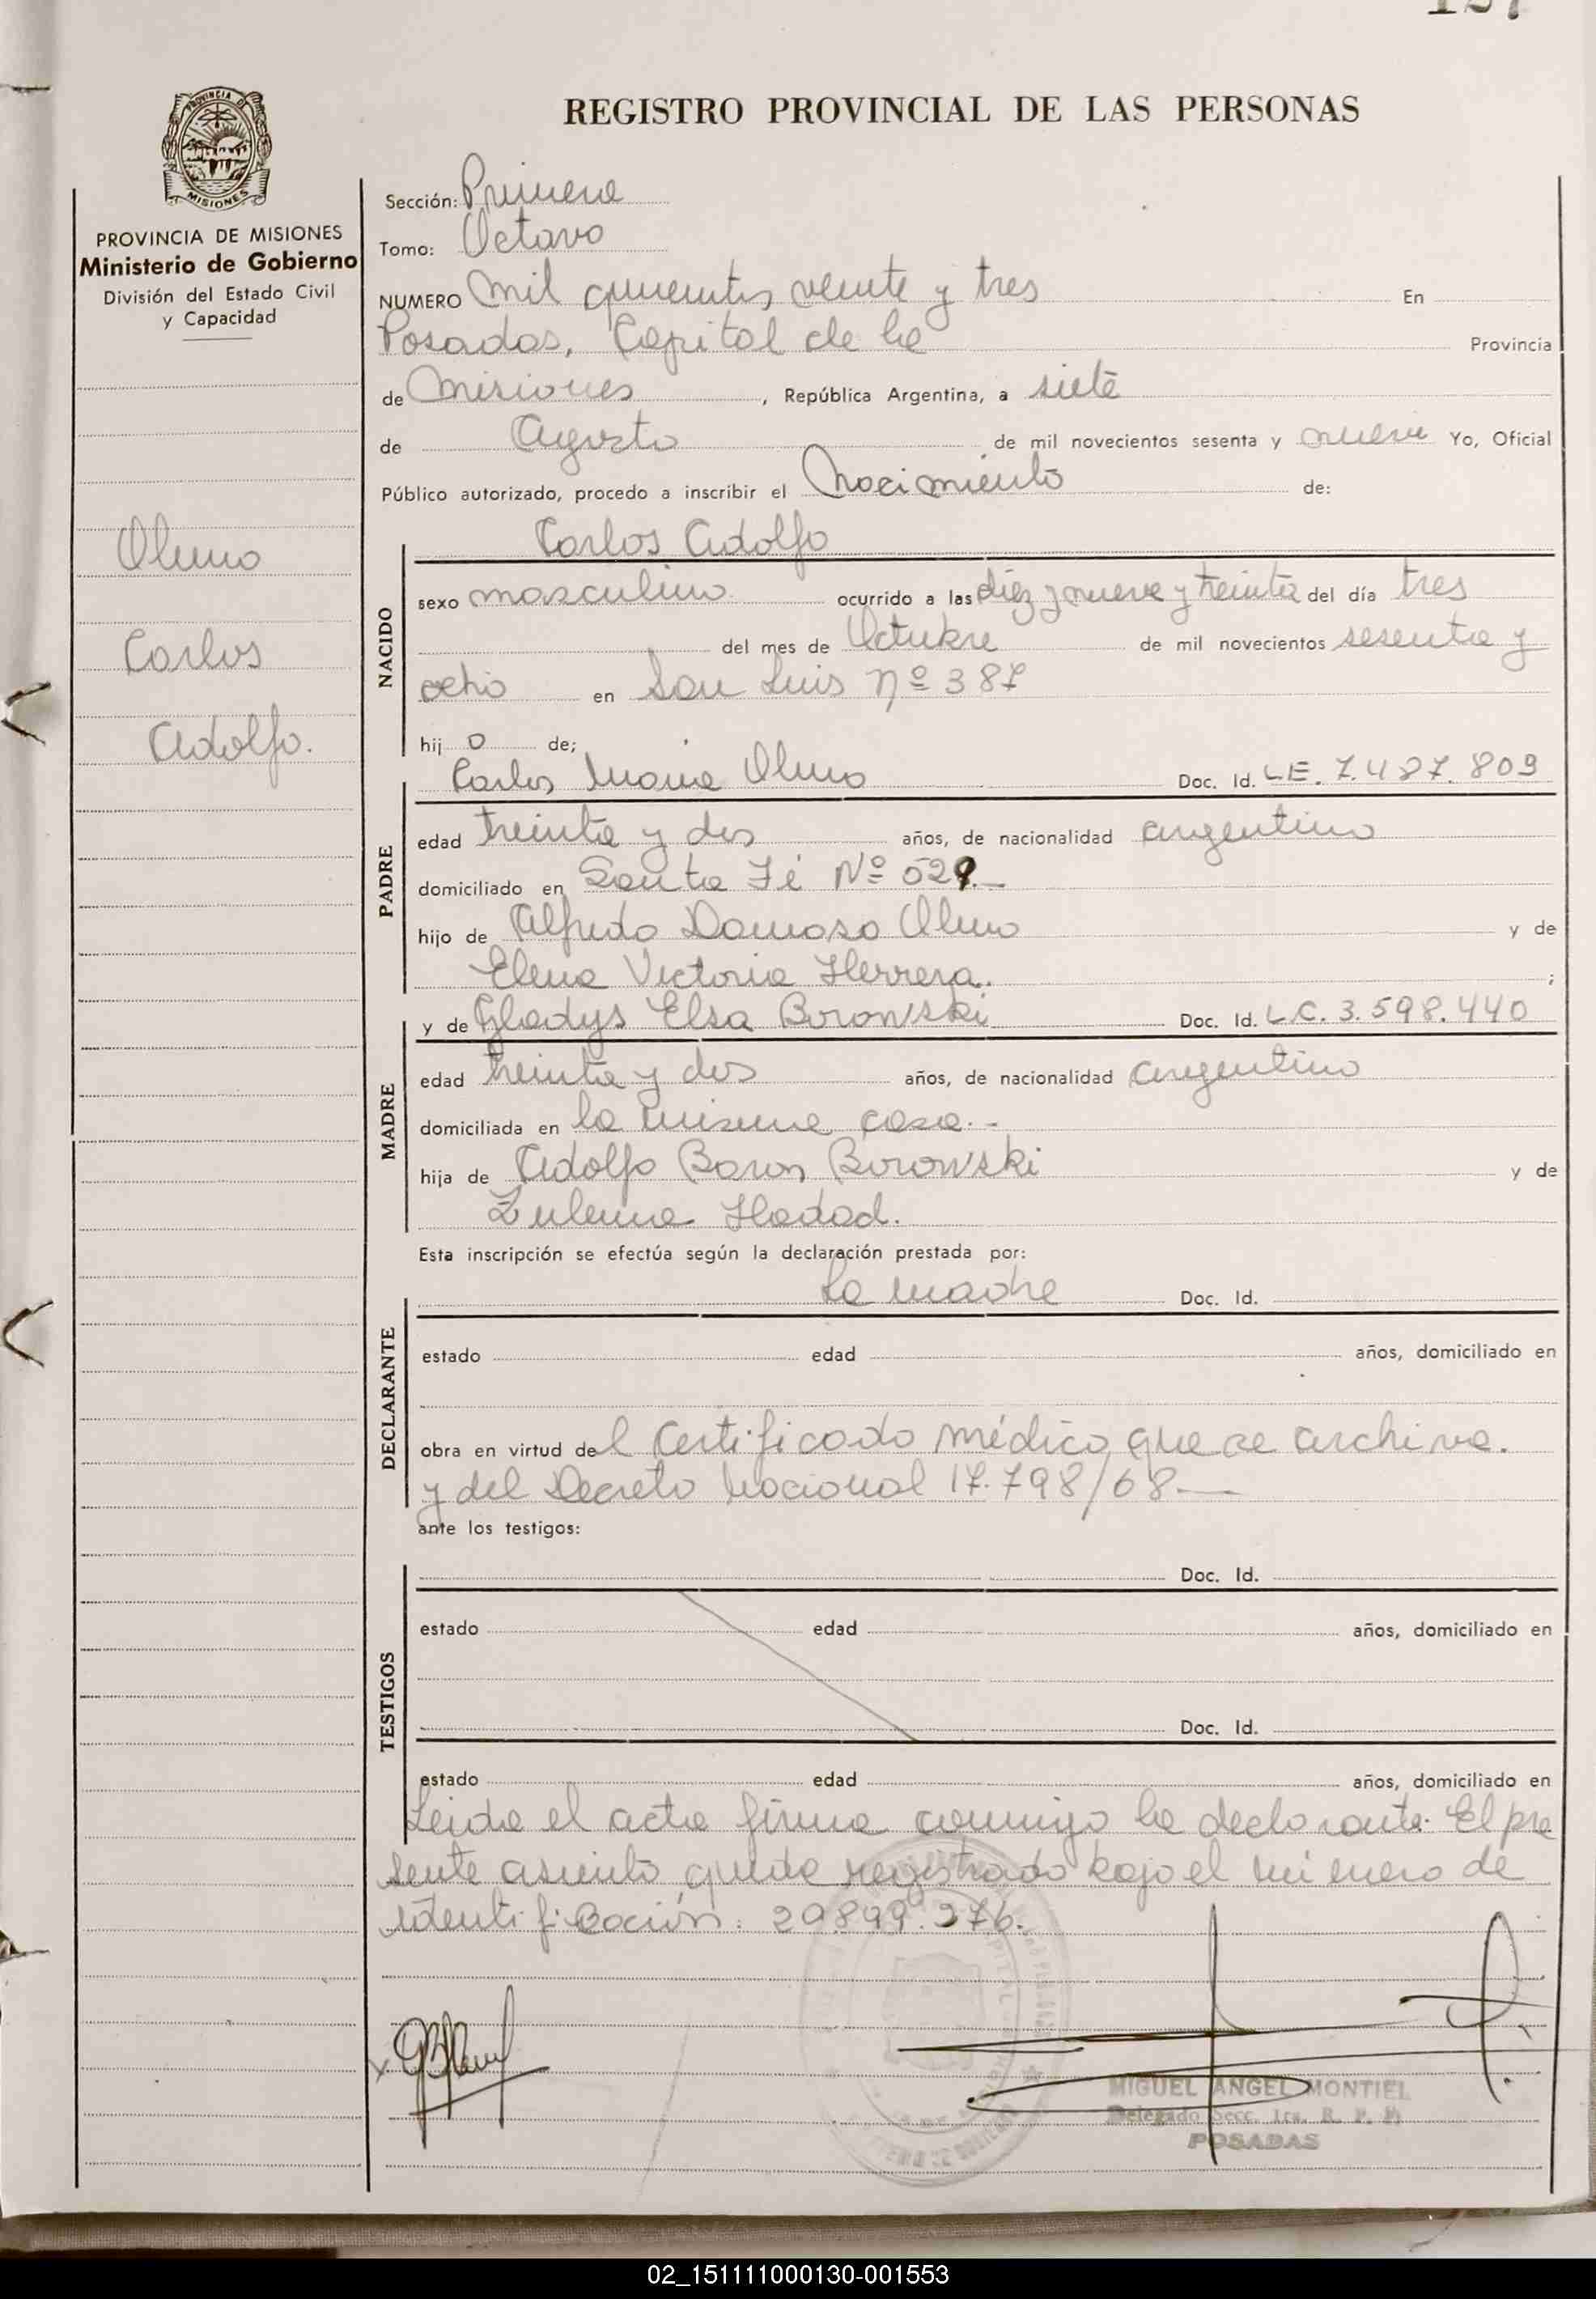 127
REGISTRO PROVINCIAL DE LAS PERSONAS
PROVINCIA DE MISIONES
PROVINCIA DE MISIONES
Ministerio de Gobierno
División del Estado Civil
y Capacidad
Olmo
Carlos
Adolfo.
Sección: Primera
Tomo: Octavo
NUMERO Mil quinientos veinte y tres En
Posadas, Capital de la Provincia
de Misiones, República Argentina, a siete
de Agosto de mil novecientos sesenta y nueve Yo, Oficial
Público autorizado, procedo a inscribir el Nacimiento de:
Carlos Adolfo
NACIDO
sexo masculino ocurrido a las diez y nueve y treinta del día tres
del mes de Octubre de mil novecientos sesenta y
ocho en San Luis Nº 387
hij o de;
Carlos Maria Olmo Doc. Id. LE. 7.487.809
PADRE
edad treinta y dos años, de nacionalidad argentino
domiciliado en Santa Fé Nº 529.-
hijo de Alfredo Damaso Olmo y de
Elena Victoria Herrera. ;
y de Gladys Elsa Borowski Doc. Id. L.C. 3.598.440
MADRE
edad treinta y dos años, de nacionalidad argentino
domiciliada en la misma casa.-
hija de Adolfo Borowski y de
Zulema Hadad.
Esta inscripción se efectúa según la declaración prestada por:
La madre Doc. Id.
DECLARANTE
estado edad años, domiciliado en
obra en virtud del Certificado médico que se archiva.
y del Decreto Nacional 17.798/68.—
ante los testigos:
Doc. Id.
TESTIGOS
estado edad años, domiciliado en
Doc. Id.
estado edad años, domiciliado en
Leida el acta firma conmigo la declarante. El pre
sente asiento queda registrado bajo el número de
identificación: 20.899.276.
MIGUEL ANGEL MONTIEL
Delegado Secc. 1ra. R. P. P.
POSADAS
02_151111000130-001553